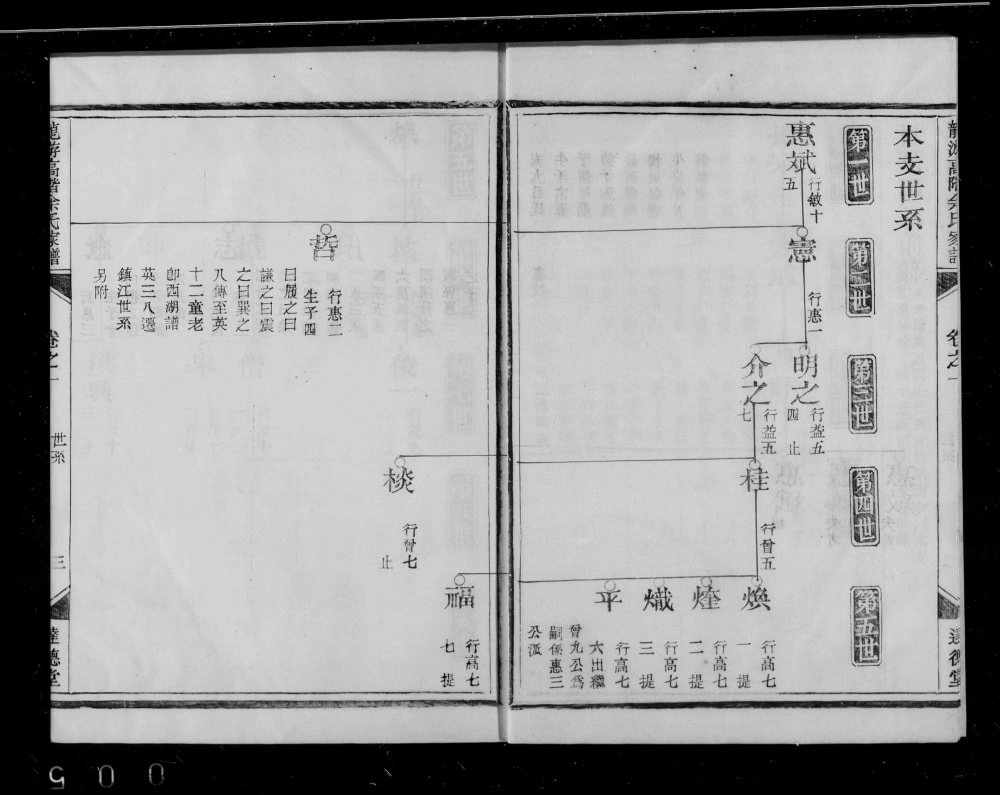 本支世系
第一世
第二世
第三世
第四世
第五世
惠斌
行敏十
五
憲
行惠一
明之
行益五
四 止
介之
行益五
七
桂
行曾五
煥
行高七
一 提
煃
行高七
二 提
熾
行高七
三 提
平
行高七
六出繼
曾九公爲
嗣係惠三
公派
福
行高七
七 提
棪
行曾七
止
晢
行惠二
生子四
曰履之曰
謙之曰震
之曰巽之
八傳至英
十二童老
卽西湖譜
英三八遷
鎮江世系
另附
龍游高階余氏家譜
卷之一
世系
三
達德堂
龍游高階余氏家譜
卷之一
達德堂
005